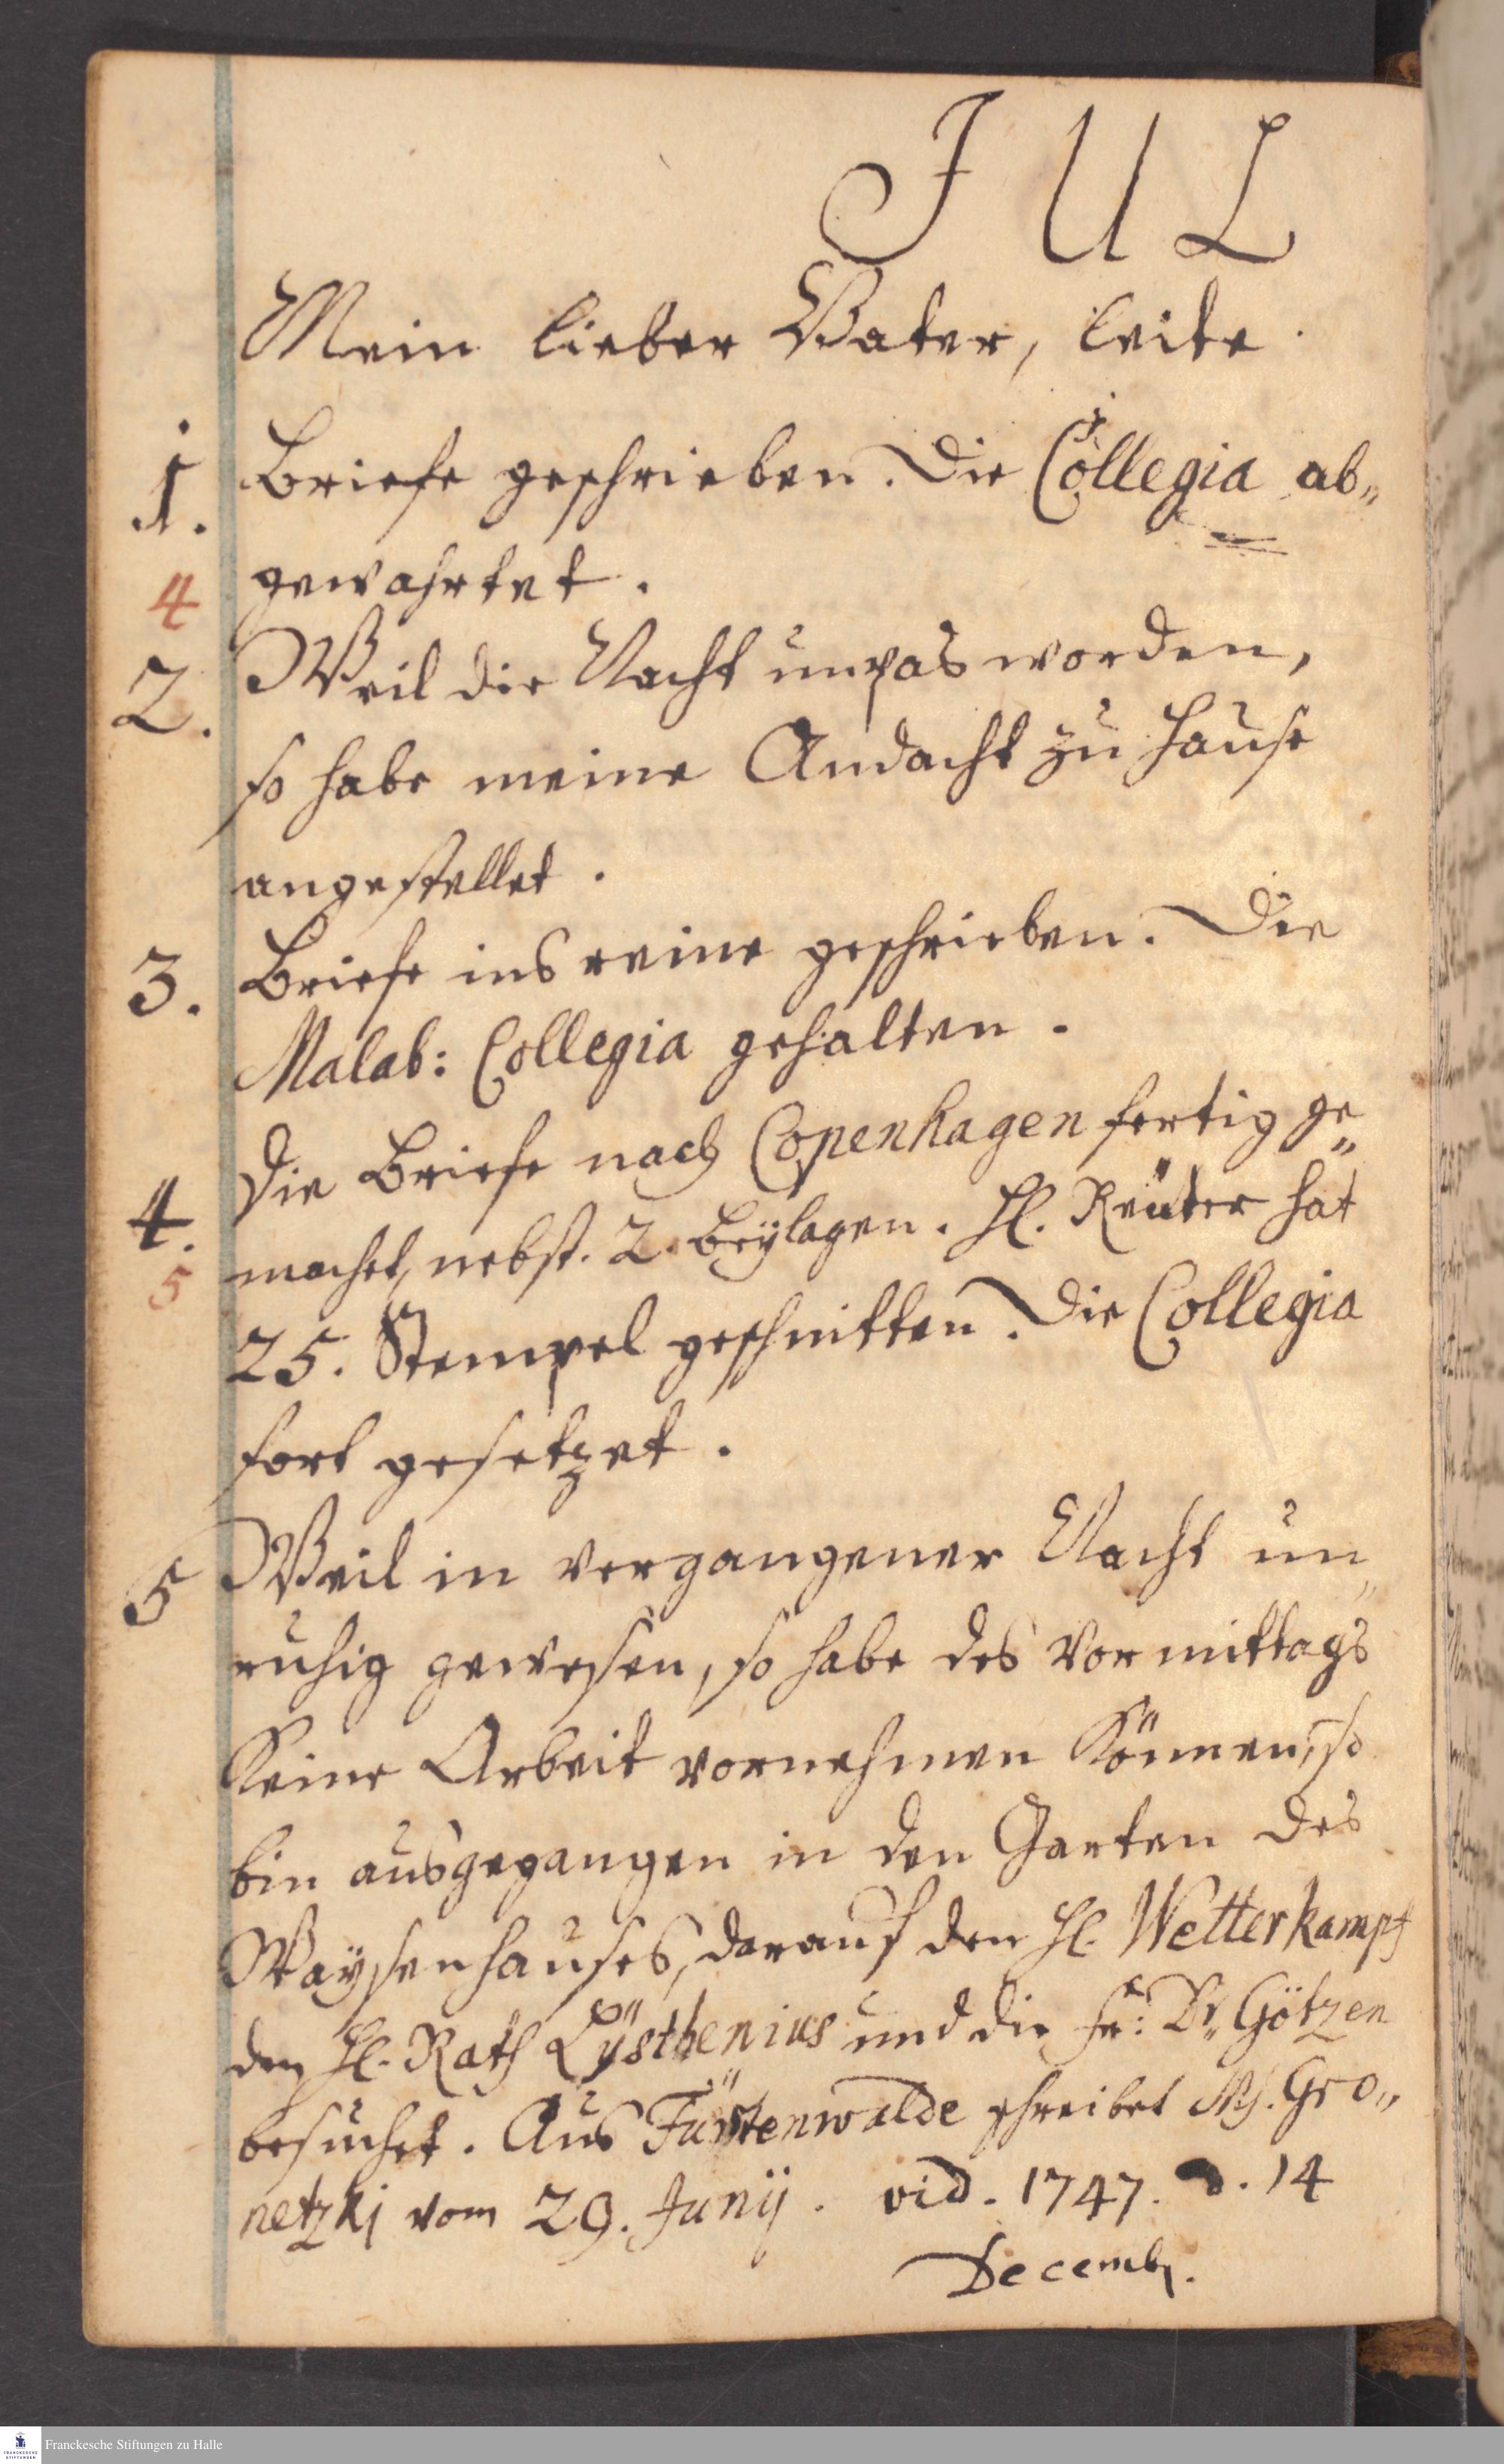 JUL
Mein lieber Vater, leite
1. Briefe geschrieben. Die Collegia ab„
gewahrtet.
4
2. Weil die Nacht unpas worden,
so habe meine Andacht zu Hause
angestellet.
3. Briefe ins reine geschrieben. Die
Malab: Collegia gehalten.
Die Briefe nach Copenhagen fertig ge„
4. machet, nebst. 2. Beÿlagen. H. Reüter hat
5
25. Stempel geschnitten. Die Collegia
fort gesetzet.
5 Weil in vergangener Nacht un„
ruhig gewesen, so habe des Vormittags
Keine Arbeit vornehmen Können, so
bin ausgegangen in den Garten des
Waysenhauses, darauf den H. Wetterkampf
den H. Rath Lÿsthenius und die Fr: Dr. Götzen
besuchet. Aus Fürstenwalde schreibet Gro„
netzki vom 29. Junij. vid. 1747. d. 14
Decembr.
Franckesche Stiftungen zu Halle